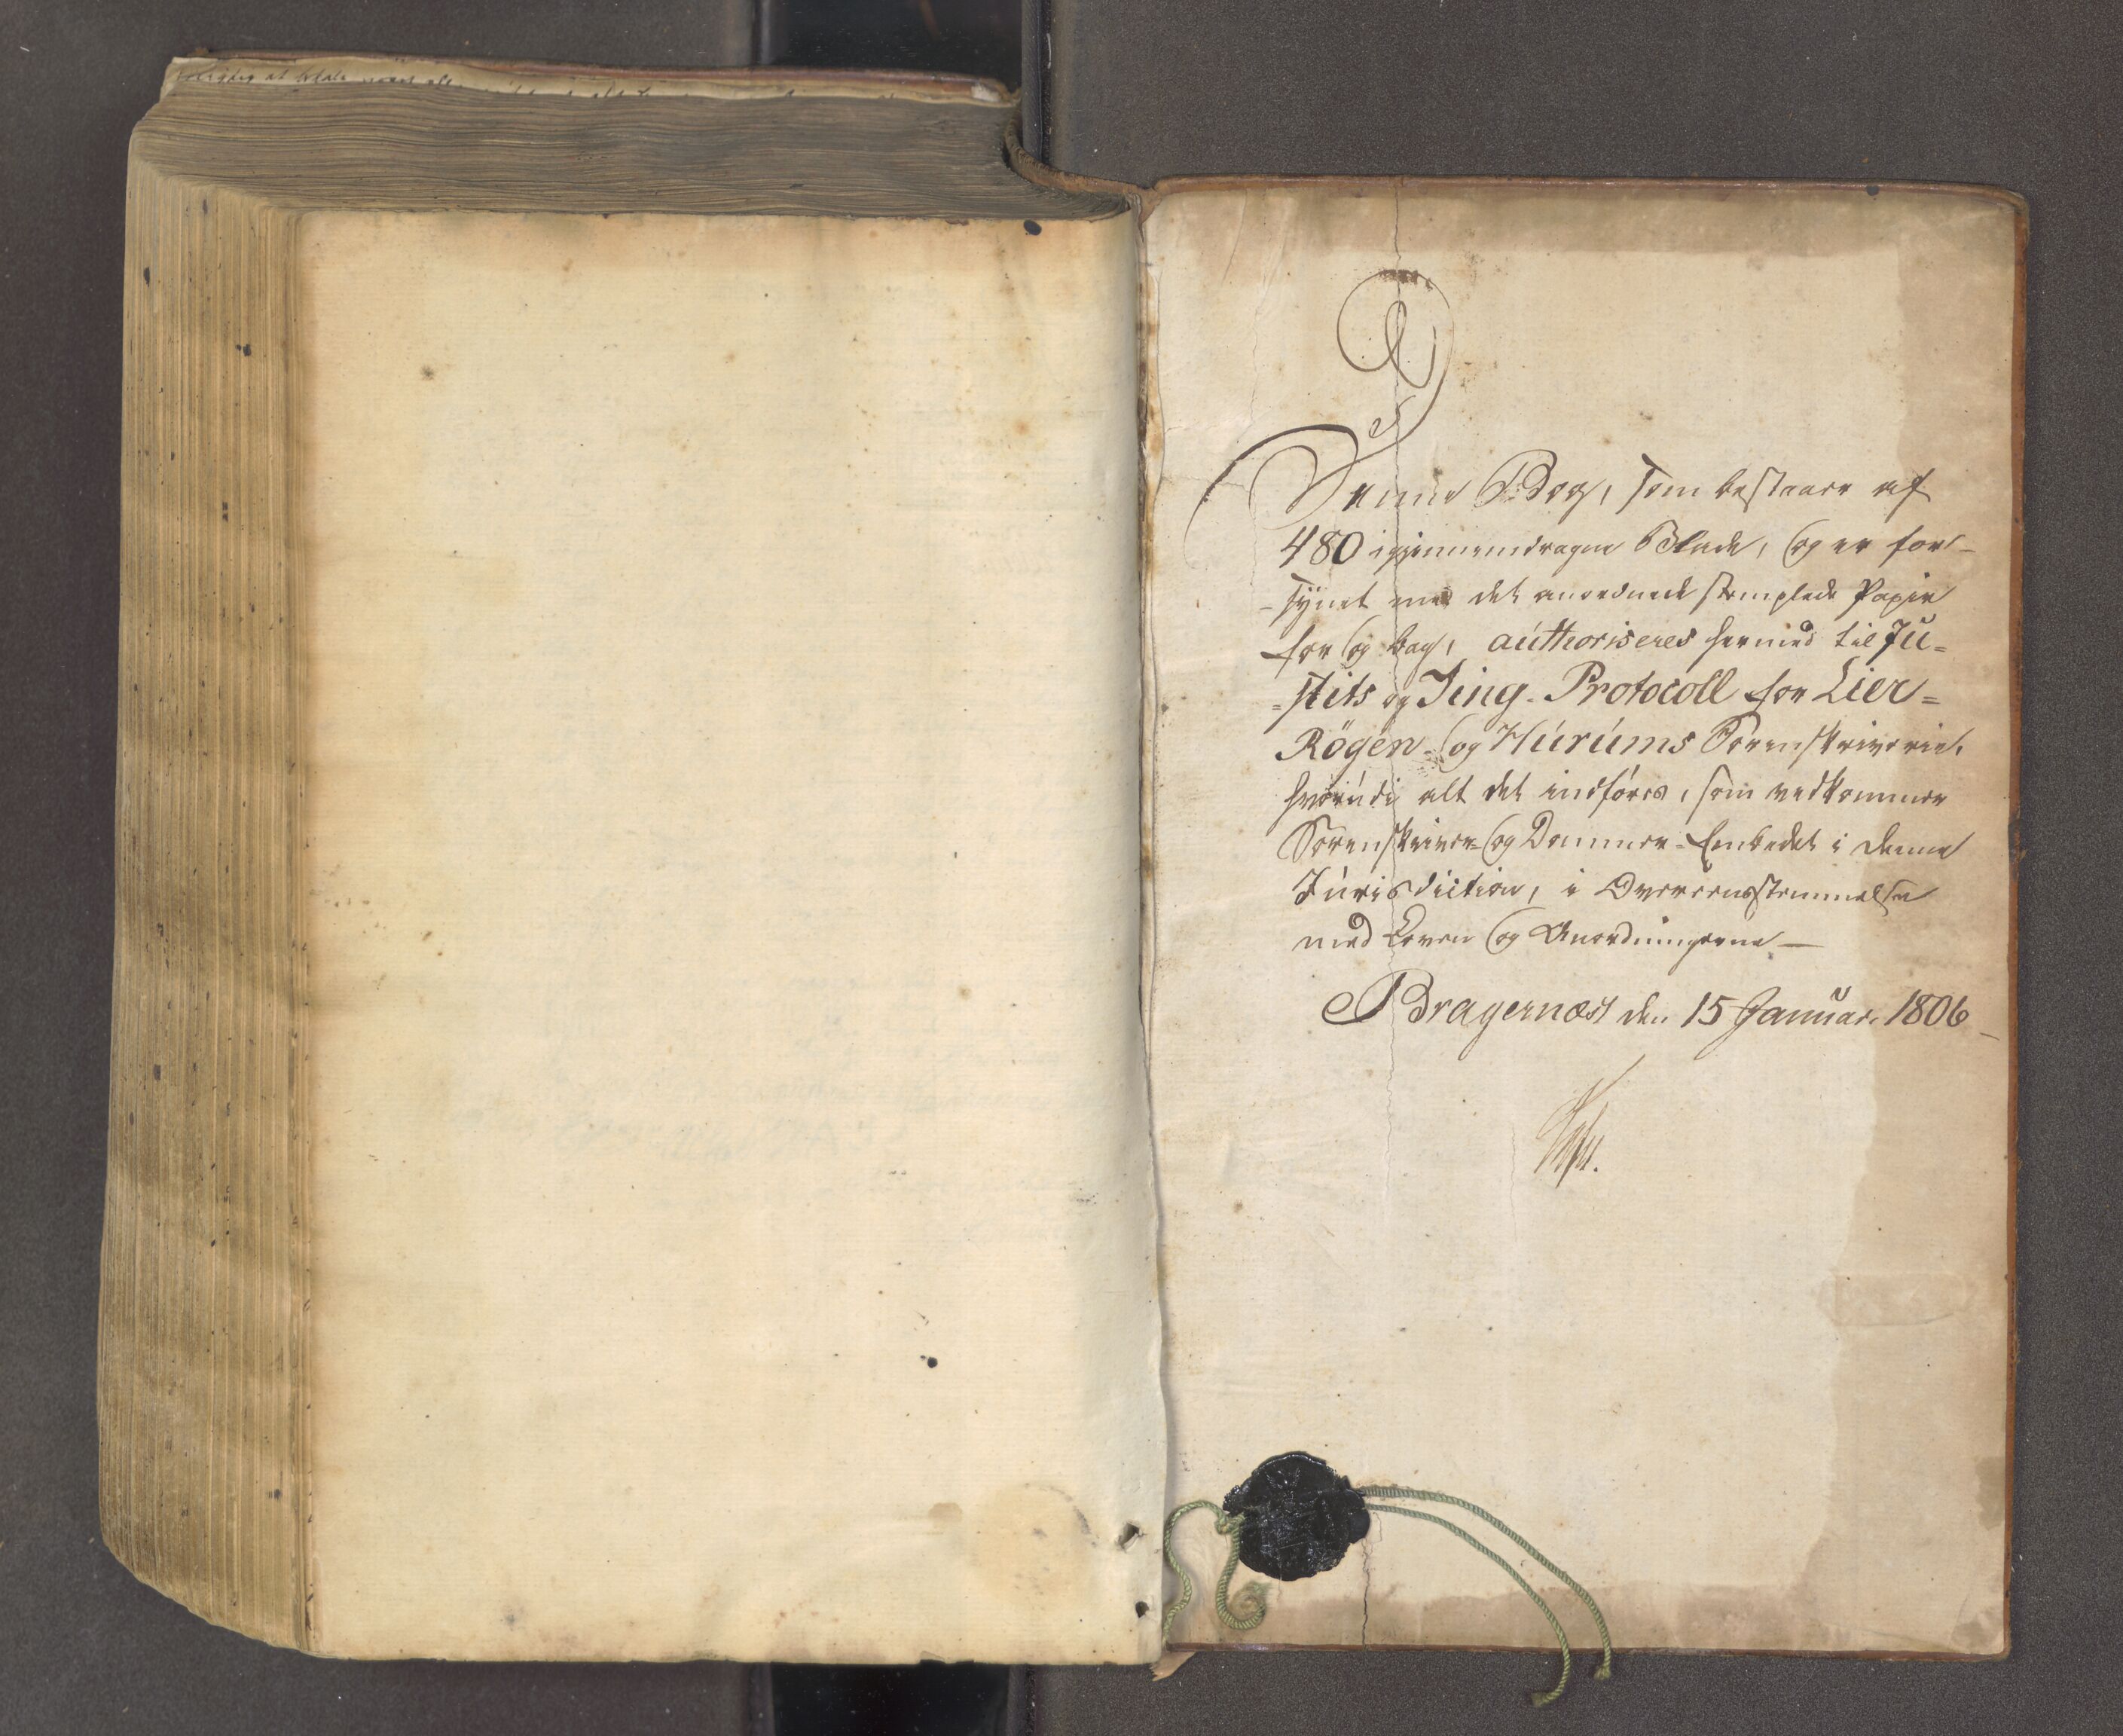 Denne Bog, som bestaaer af
480 igjennemdragne Blade, og er for-
-synet med det anordnede stemplede Papiir
for og bag, authoriseres hermed til Ju=
=stits og Ting-Protocoll for Lier=
Røgen- og Hurums Sorenskriverie,
hvorudi alt det indføres, som vedkommer
Sorenskriver- og Dommer-Embedet i denne
Jurisdiction, i Overeensstemmelse
med Loven og Anordningerne —
Bragernæs den 15 Januar. 1806